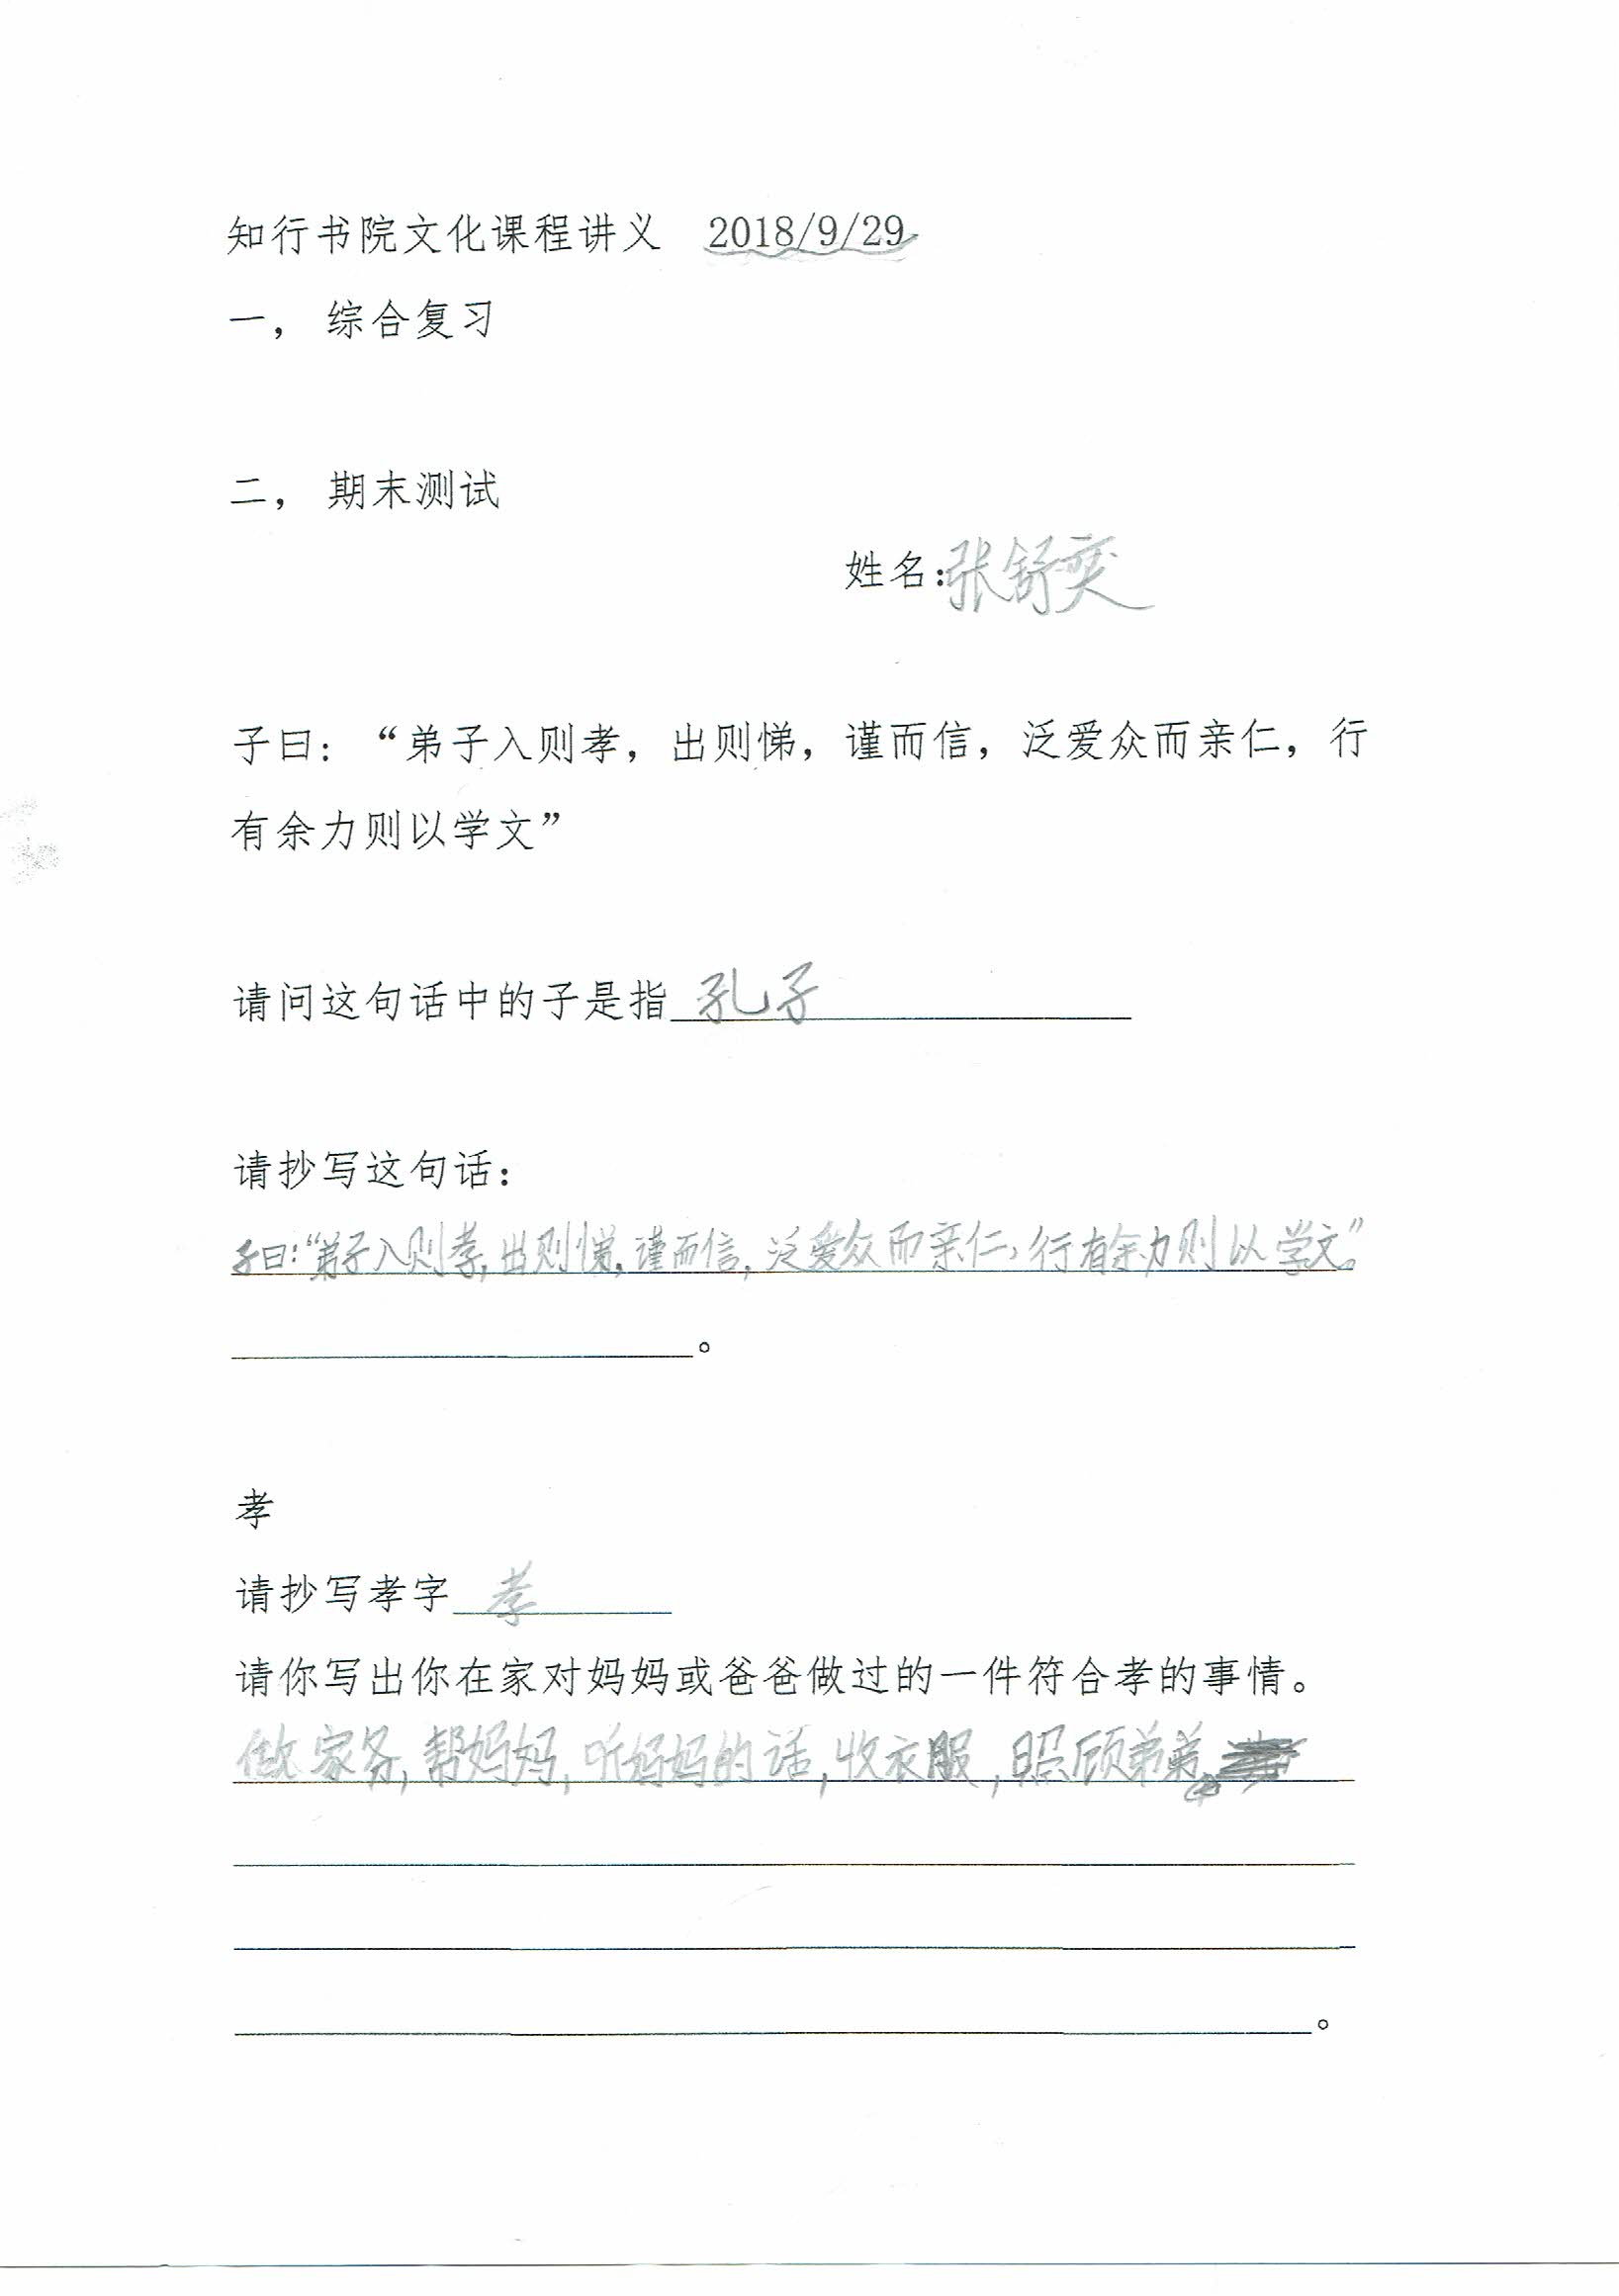 知行书院文化课程讲义 2018/9/29
一， 综合复习
二， 期末测试
姓名：张舒奕
子曰：“弟子入则孝，出则悌，谨而信，泛爱众而亲仁，行
有余力则以学文”
请问这句话中的子是指 孔子
请抄写这句话：
子曰：“弟子入则孝，出则悌，谨而信，泛爱众而亲仁，行有余力则以学文。”
。
孝
请抄写孝字 孝
请你写出你在家对妈妈或爸爸做过的一件符合孝的事情。
做家务，帮妈妈，听妈妈的话，收衣服，照顾弟弟。
。